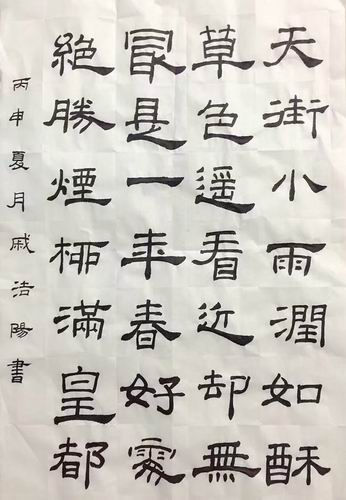 天街小雨潤如酥
草色遥看近却無
冣是一年春好處
絶勝煙柳滿皇都
丙申夏月戚洁陽書